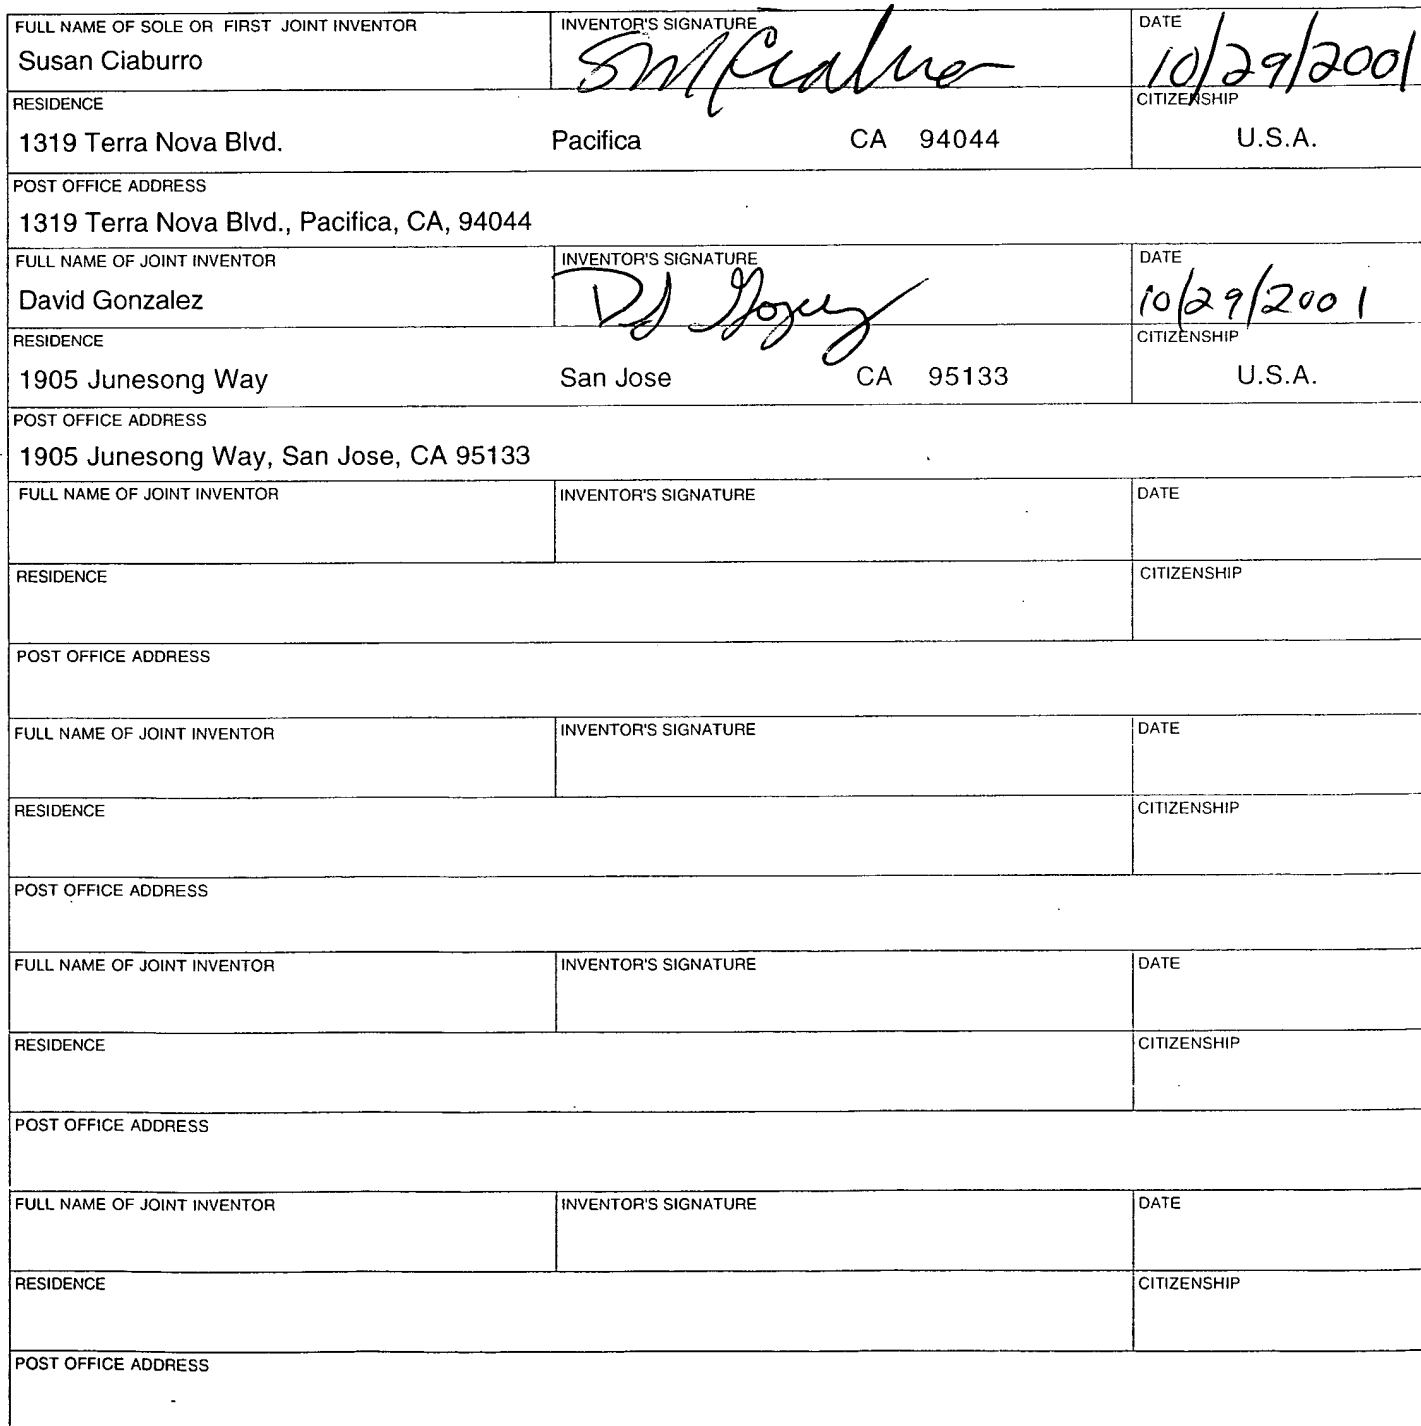 FULL NAME OF SOLE OR FIRST JOINT INVENTOR INVENTOR'S SIGNATURE DATE
Susan Ciaburro SMCiaburro 10/29/2001
RESIDENCE CITIZENSHIP
1319 Terra Nova Blvd. Pacifica CA 94044 U.S.A.
POST OFFICE ADDRESS
1319 Terra Nova Blvd., Pacifica, CA, 94044
FULL NAME OF JOINT INVENTOR INVENTOR'S SIGNATURE DATE
David Gonzalez 10/29/2001
RESIDENCE CITIZENSHIP
1905 Junesong Way San Jose CA 95133 U.S.A.
POST OFFICE ADDRESS
1905 Junesong Way, San Jose, CA 95133
FULL NAME OF JOINT INVENTOR INVENTOR'S SIGNATURE DATE
RESIDENCE CITIZENSHIP
POST OFFICE ADDRESS
FULL NAME OF JOINT INVENTOR INVENTOR'S SIGNATURE DATE
RESIDENCE CITIZENSHIP
POST OFFICE ADDRESS
FULL NAME OF JOINT INVENTOR INVENTOR'S SIGNATURE DATE
RESIDENCE CITIZENSHIP
POST OFFICE ADDRESS
FULL NAME OF JOINT INVENTOR INVENTOR'S SIGNATURE DATE
RESIDENCE CITIZENSHIP
POST OFFICE ADDRESS